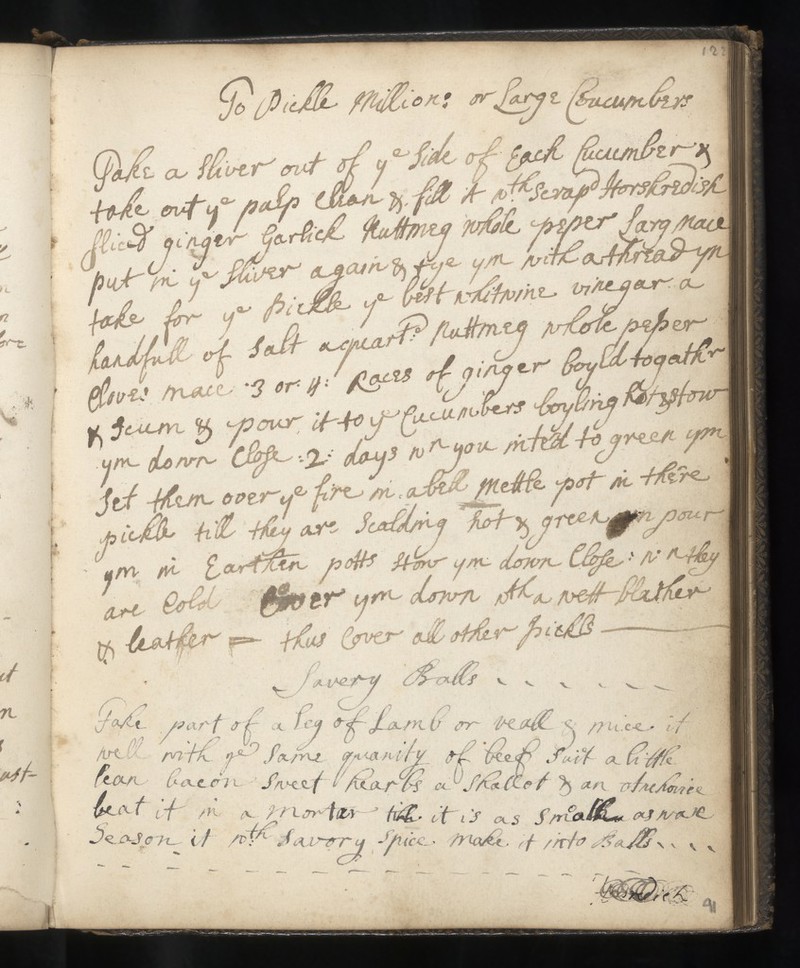 122
To Pickle Millions or Large Coucumbers
Take a Sliver out of yᵉ Side of Each Cucumber &
take out yᵉ palp Clean & fill it wᵗʰ Scrapᵈ Horshredish
Sliced ginger Garlick Nuttmeg whole peper Larg Mace
put in yᵉ Sliver again & tye ym with a thread yn
take for yᵉ Pickle yᵉ best whitwine vinegar a
handfull of Salt a quartᵈ Nuttmeg whole peper
Cloves mace 3 or 4: Races of ginger boyld togathʳ
& Scum & pour it to yᵉ Cucumbers boyling hot & stow
ym down Close :2: days wn you inted to green ym
Set them over yᵉ fire in a bell Mettle pot in there
pickle till they are Scalding hot & green yn pour
ym in Earthen potts stow ym down Close: wn they
are Cold Cover ym down wth a wett blather
& leather = thus Cover all other Pickls
Savery Balls
Take part of a leg of Lamb or veall & mice it
well with yᵉ Same quanity of beef Suit a little
lean bacon Sweet hearbs a Shallot & an
beat it in a Mortar till it is as Small as wax
Season it wᵗʰ Savory Spice make it into Balls
91